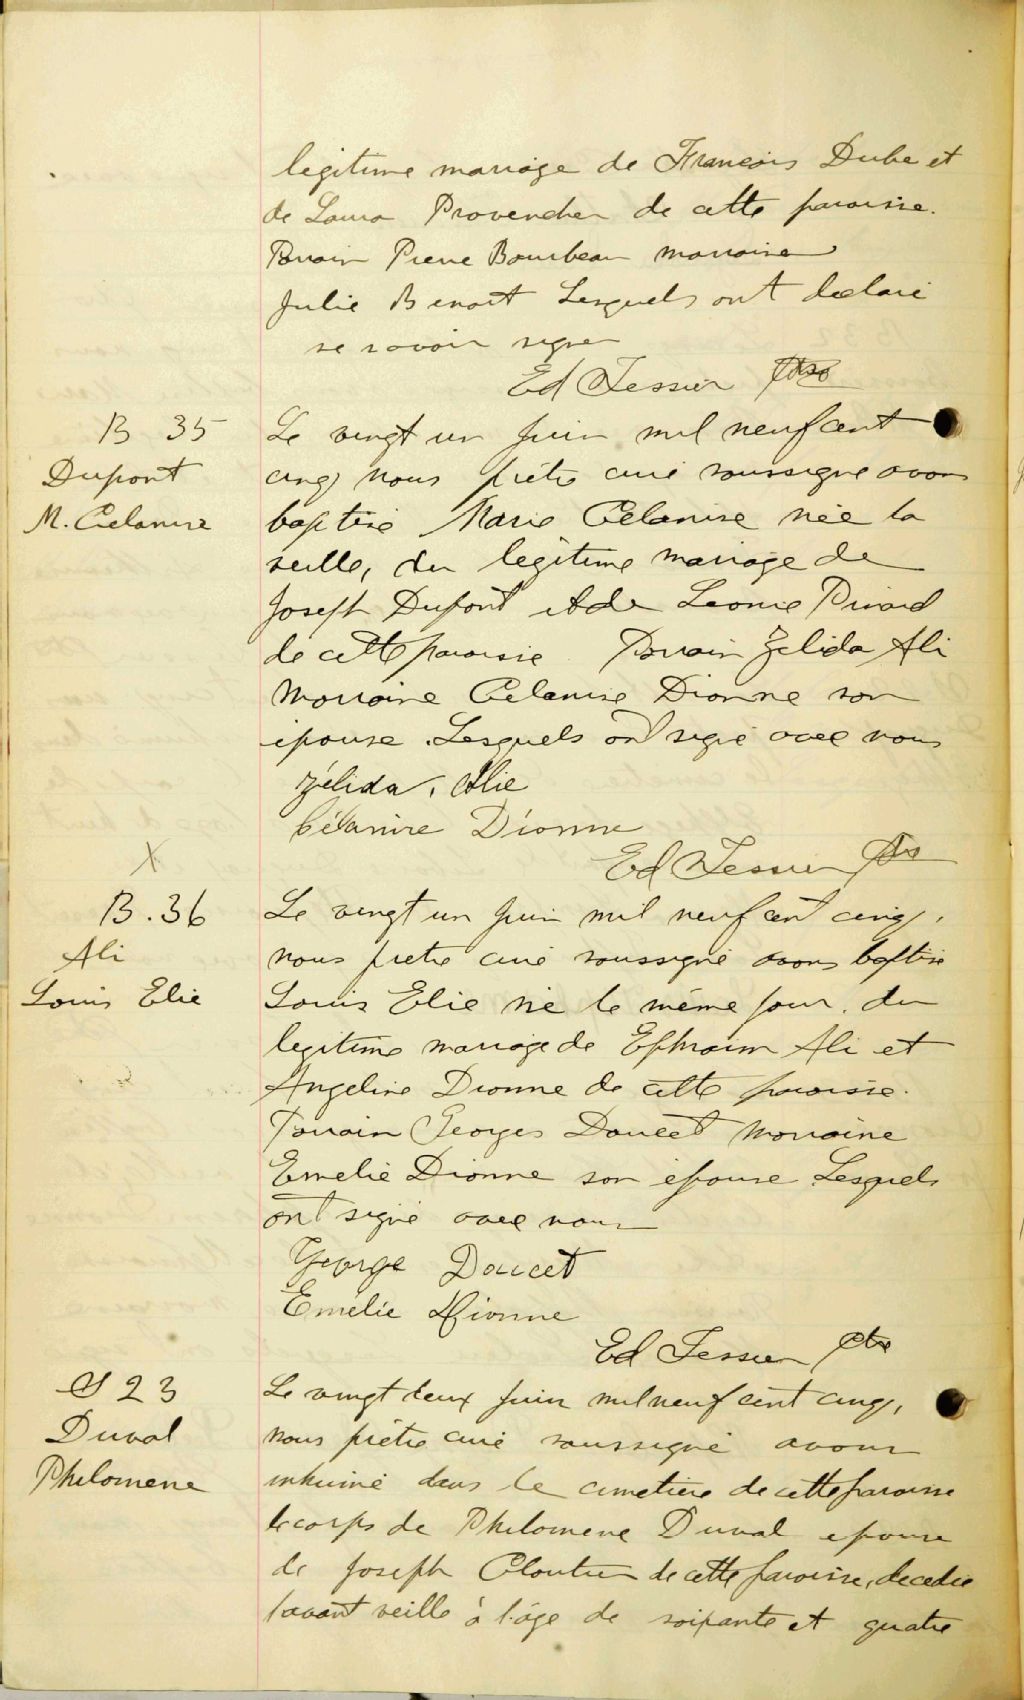 legitime mariage de Francois Dube et
de Laura Provencher de cette paroisse.
Parrain Pierre Bourbeau marraine
Julie Benoit Lesquels ont declaré
ne savoir signer
Ed Tessier Ptre
B 35
Dupont
M. Celanire
Le vingt un Juin mil neuf cent
cinq nous prêtre curé soussigné avons
baptisé Marie Célanire née la
veille, du legitime mariage de
Joseph Dupont et de Leonie Pinard
de cette paroisse Parrain Zelida Ali
Marraine Celanire Dionne son
épouse. Lesquels ont signé avec nous
Zélida, Alie
Célanire Dionne
Ed Tessier Ptre
X
B. 36
Ali
Louis Elie
Le vingt un Juin mil neuf cent cinq,
nous pretre curé soussigné avons baptisé
Louis Elie né le même jour. du
legitime mariage de Ephraim Ali et
Angeline Dionne de cette paroisse.
Parrain Georges Doucet Marraine
Emelie Dionne son épouse Lesquels
ont signé avec nous
George Doucet
Emélie Dionne
Ed Tessier Ptre
S 23
Duval
Philomene
Le vingt deux Juin mil neuf cent cinq,
nous prêtre curé soussigné avons
inhumé dans le cimetière de cette paroisse
le corps de Philomene Duval epouse
de Joseph Cloutier de cette paroisse, decedée
l'avant veille à l'âge de soixante et quatre